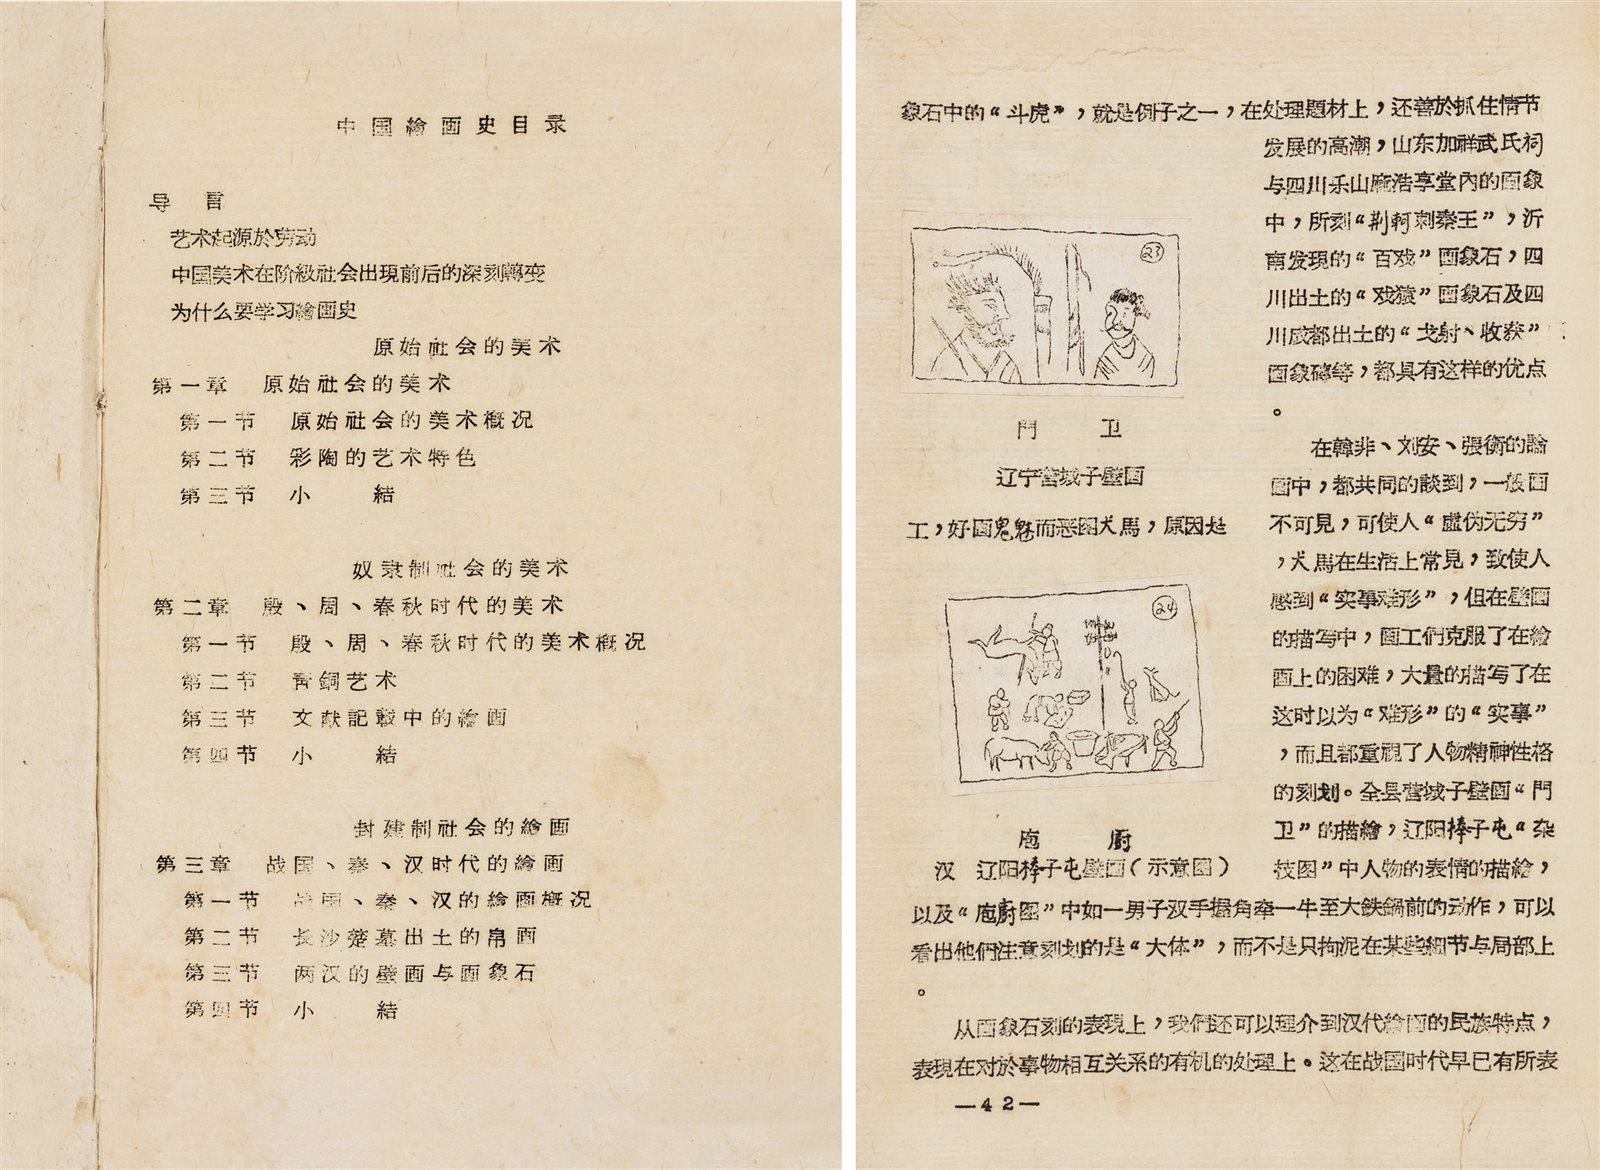 中国繪画史目录
导　言
艺术起源於劳动
中国美术在阶級社会出現前后的深刻轉变
为什么要学习繪画史
原始社会的美术
第一章　原始社会的美术
第一节　原始社会的美术概况
第二节　彩陶的艺术特色
第三节　小　　結
奴隶制社会的美术
第二章　殷、周、春秋时代的美术
第一节　殷、周、春秋时代的美术概况
第二节　青銅艺术
第三节　文献記載中的繪画
第四节　小　　結
封建制社会的繪画
第三章　战国、秦、汉时代的繪画
第一节　战国、秦、汉的繪画概况
第二节　长沙楚墓出土的帛画
第三节　两汉的壁画与画象石
第四节　小　　結
象石中的“斗虎”，就是例子之一，在处理題材上，还善於抓住情节
发展的高潮，山东加祥武氏祠
与四川乐山麻浩享堂內的画象
中，所刻“荆軻刺秦王”，沂
南发現的“百戏”画象石，四
川出土的“戏猿”画象石及四
川成都出土的“弋射、收获”
画象磚等，都具有这样的优点
。
23
門　　卫
辽宁营城子壁画
在韓非、刘安、張衡的論
画中，都共同的談到，一般画
工，好画鬼魅而恶图犬馬，原因是
不可見，可使人“虛伪无穷”
，犬馬在生活上常見，致使人
感到“实事难形”，但在壁画
的描写中，画工們克服了在繪
画上的困难，大量的描写了在
这时以为“难形”的“实事”
，而且都重視了人物精神性格
的刻划。全县营城子壁画“門
卫”的描繪，辽阳棒子屯“杂
技图”中人物的表情的描繪，
24
庖　　廚
汉　辽阳棒子屯壁画（示意图）
以及“庖廚图”中如一男子双手握角牵一牛至大鉄鍋前的动作，可以
看出他們注意刻划的是“大体”，而不是只拘泥在某些細节与局部上
。
从画象石刻的表現上，我們还可以理介到汉代繪画的民族特点，
表現在对於事物相互关系的有机的处理上。这在战国时代早已有所表
—42—